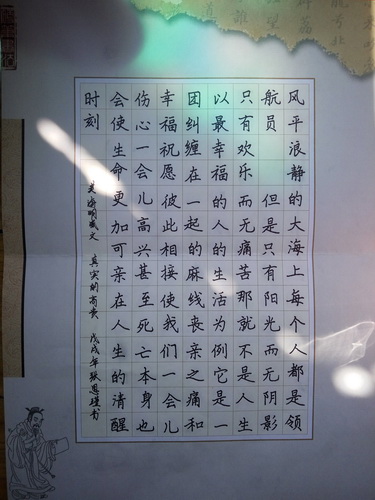 风平浪静的大海上每个人都是领
航员 但是只有阳光而无阴影
只有欢乐 而无痛苦那就不是人生
以最幸福的人的生活为例它是一
团纠缠在一起的麻线丧亲之痛和
幸福祝愿彼此相接使我们一会儿
伤心一会儿高兴甚至死亡本身也
会使生命更加可亲在人生的清醒
时刻
美海明威文 真实的高贵 戊戌年张思书